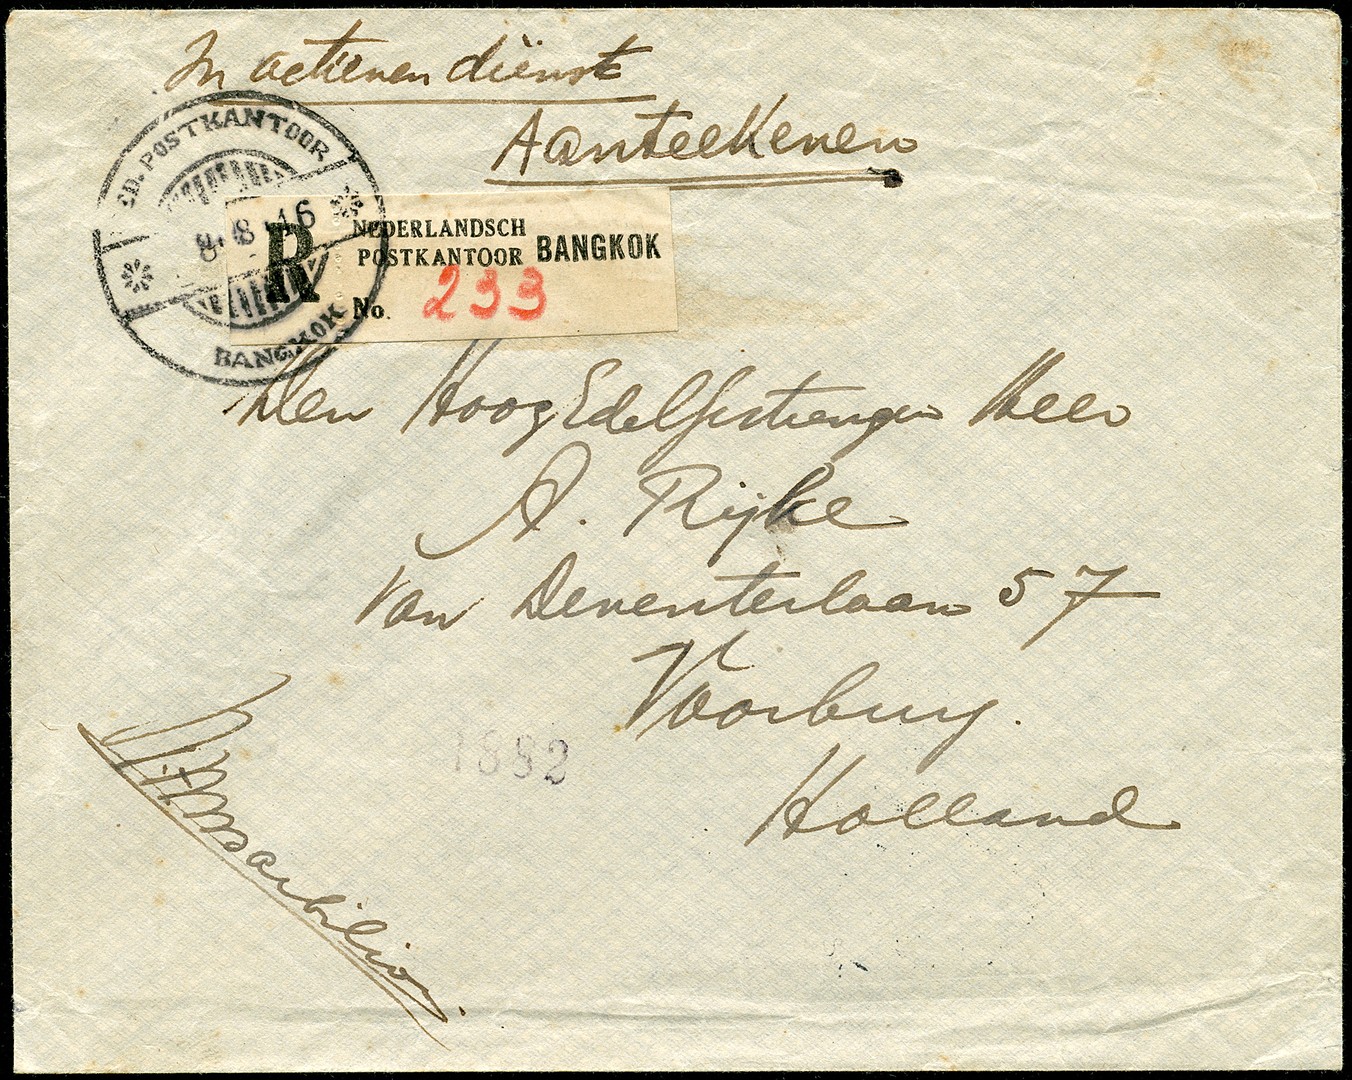 In actieven dienst
Aanteekenen
ED. POSTKANTOOR
8.8.46
BANGKOK
R
NEDERLANDSCH
POSTKANTOOR BANGKOK
No. 233
Den HoogEdelGestrengen Heer
A. Rijke
Van Deventerlaan 57
Voorburg.
Holland
1882